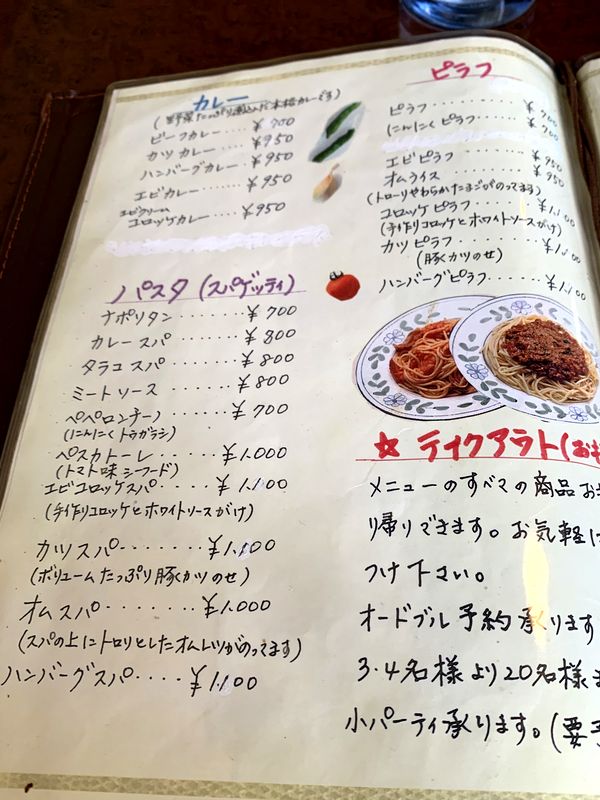 カレー
(野菜たっぷり煮込んだ本格カレーです)
ビーフカレー....¥700
カツカレー.....¥950
ハンバーグカレー...¥950
エビカレー......¥950
エビクリーム
コロッケカレー...¥950
パスタ(スパゲッティ)
ナポリタン........¥700
カレースパ........¥800
タラコスパ........¥800
ミートソース.......¥800
ペペロンチーノ......¥700
(にんにくトウガラシ)
ペスカトーレ......¥1.000
(トマト味シーフード)
エビコロッケスパ....¥1.100
(手作りコロッケとホワイトソースがけ)
カツスパ.......¥1.100
(ボリュームたっぷり豚カツのせ)
オムスパ.......¥1.000
(スパの上にトロリとしたオムレツがのってます)
ハンバーグスパ....¥1.100
ピラフ
ピラフ.........¥700
(にんにくピラフ......¥700
エビピラフ........¥950
オムライス........¥950
(トローリやわらかたまごがのってます)
コロッケピラフ......¥1.100
(手作りコロッケとホワイトソースがけ)
カツピラフ........¥1.100
(豚カツのせ)
ハンバーグピラフ.....¥1.100
☆テイクアウト(お
メニューのすべての商品お
帰りできます。お気軽に
つけ下さい。
オードブル予約承ります
3・4名様より20名様ま
小パーティ承ります。(要予